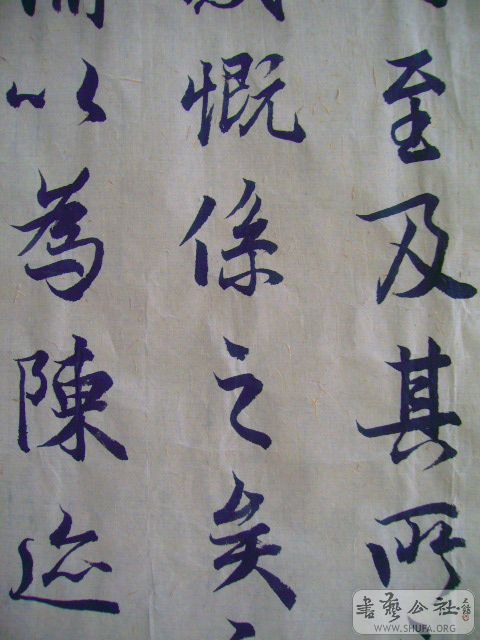 至及其所
慨係之矣
以為陳迹
書藝公社
WWW.SHUFA.ORG